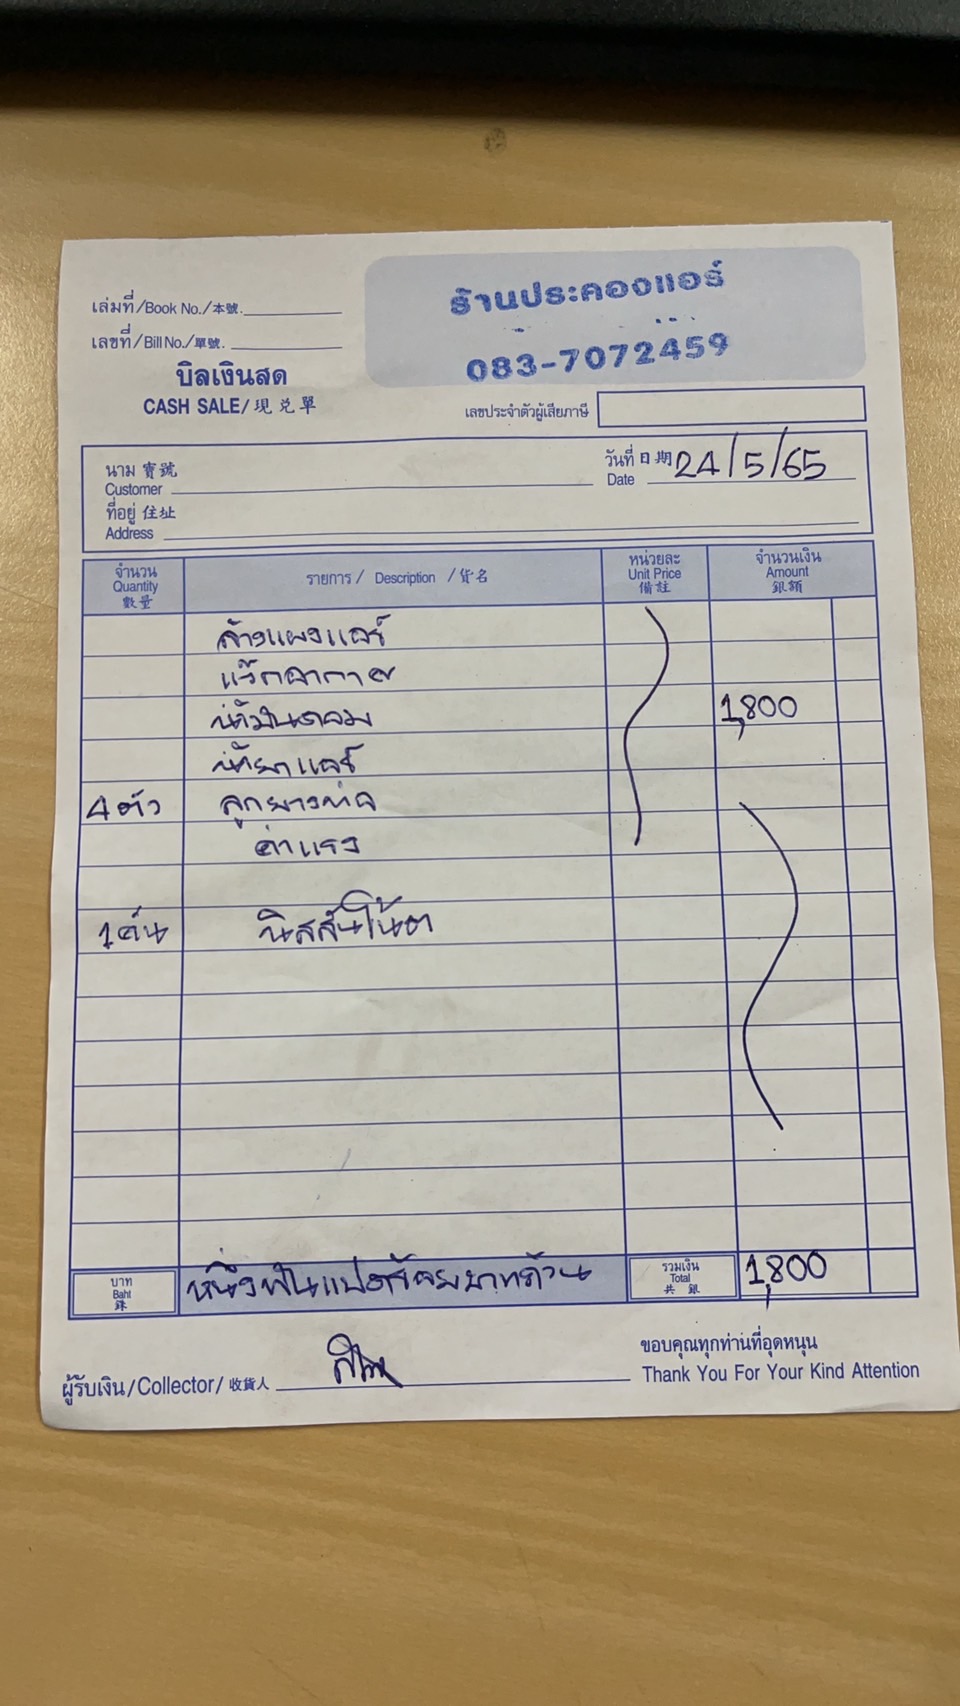 ร้านประคองแอร์
083-7072459
เล่มที่/Book No./本號.
เลขที่/Bill No./單號.
บิลเงินสด
CASH SALE/現兑單
เลขประจำตัวผู้เสียภาษี
นาม 寶號
Customer
วันที่ 日期 24/5/65
Date
ที่อยู่ 住址
Address
จำนวน
Quantity
數量
รายการ / Description / 货名
หน่วยละ
Unit Price
備註
จำนวนเงิน
Amount
銀額
ล้างแผงแอร์
แว๊กอากาศ
น้ำมันคอม 1,800
น้ำยาแอร์
4 ตัว ลูกยางท่อ
ค่าแรง
1 คัน นิสสันโน๊ต
บาท
Baht
銖
หนึ่งพันแปดร้อยบาทถ้วน
รวมเงิน
Total
共銀
1,800
ผู้รับเงิน/Collector/收貨人
ขอบคุณทุกท่านที่อุดหนุน
Thank You For Your Kind Attention